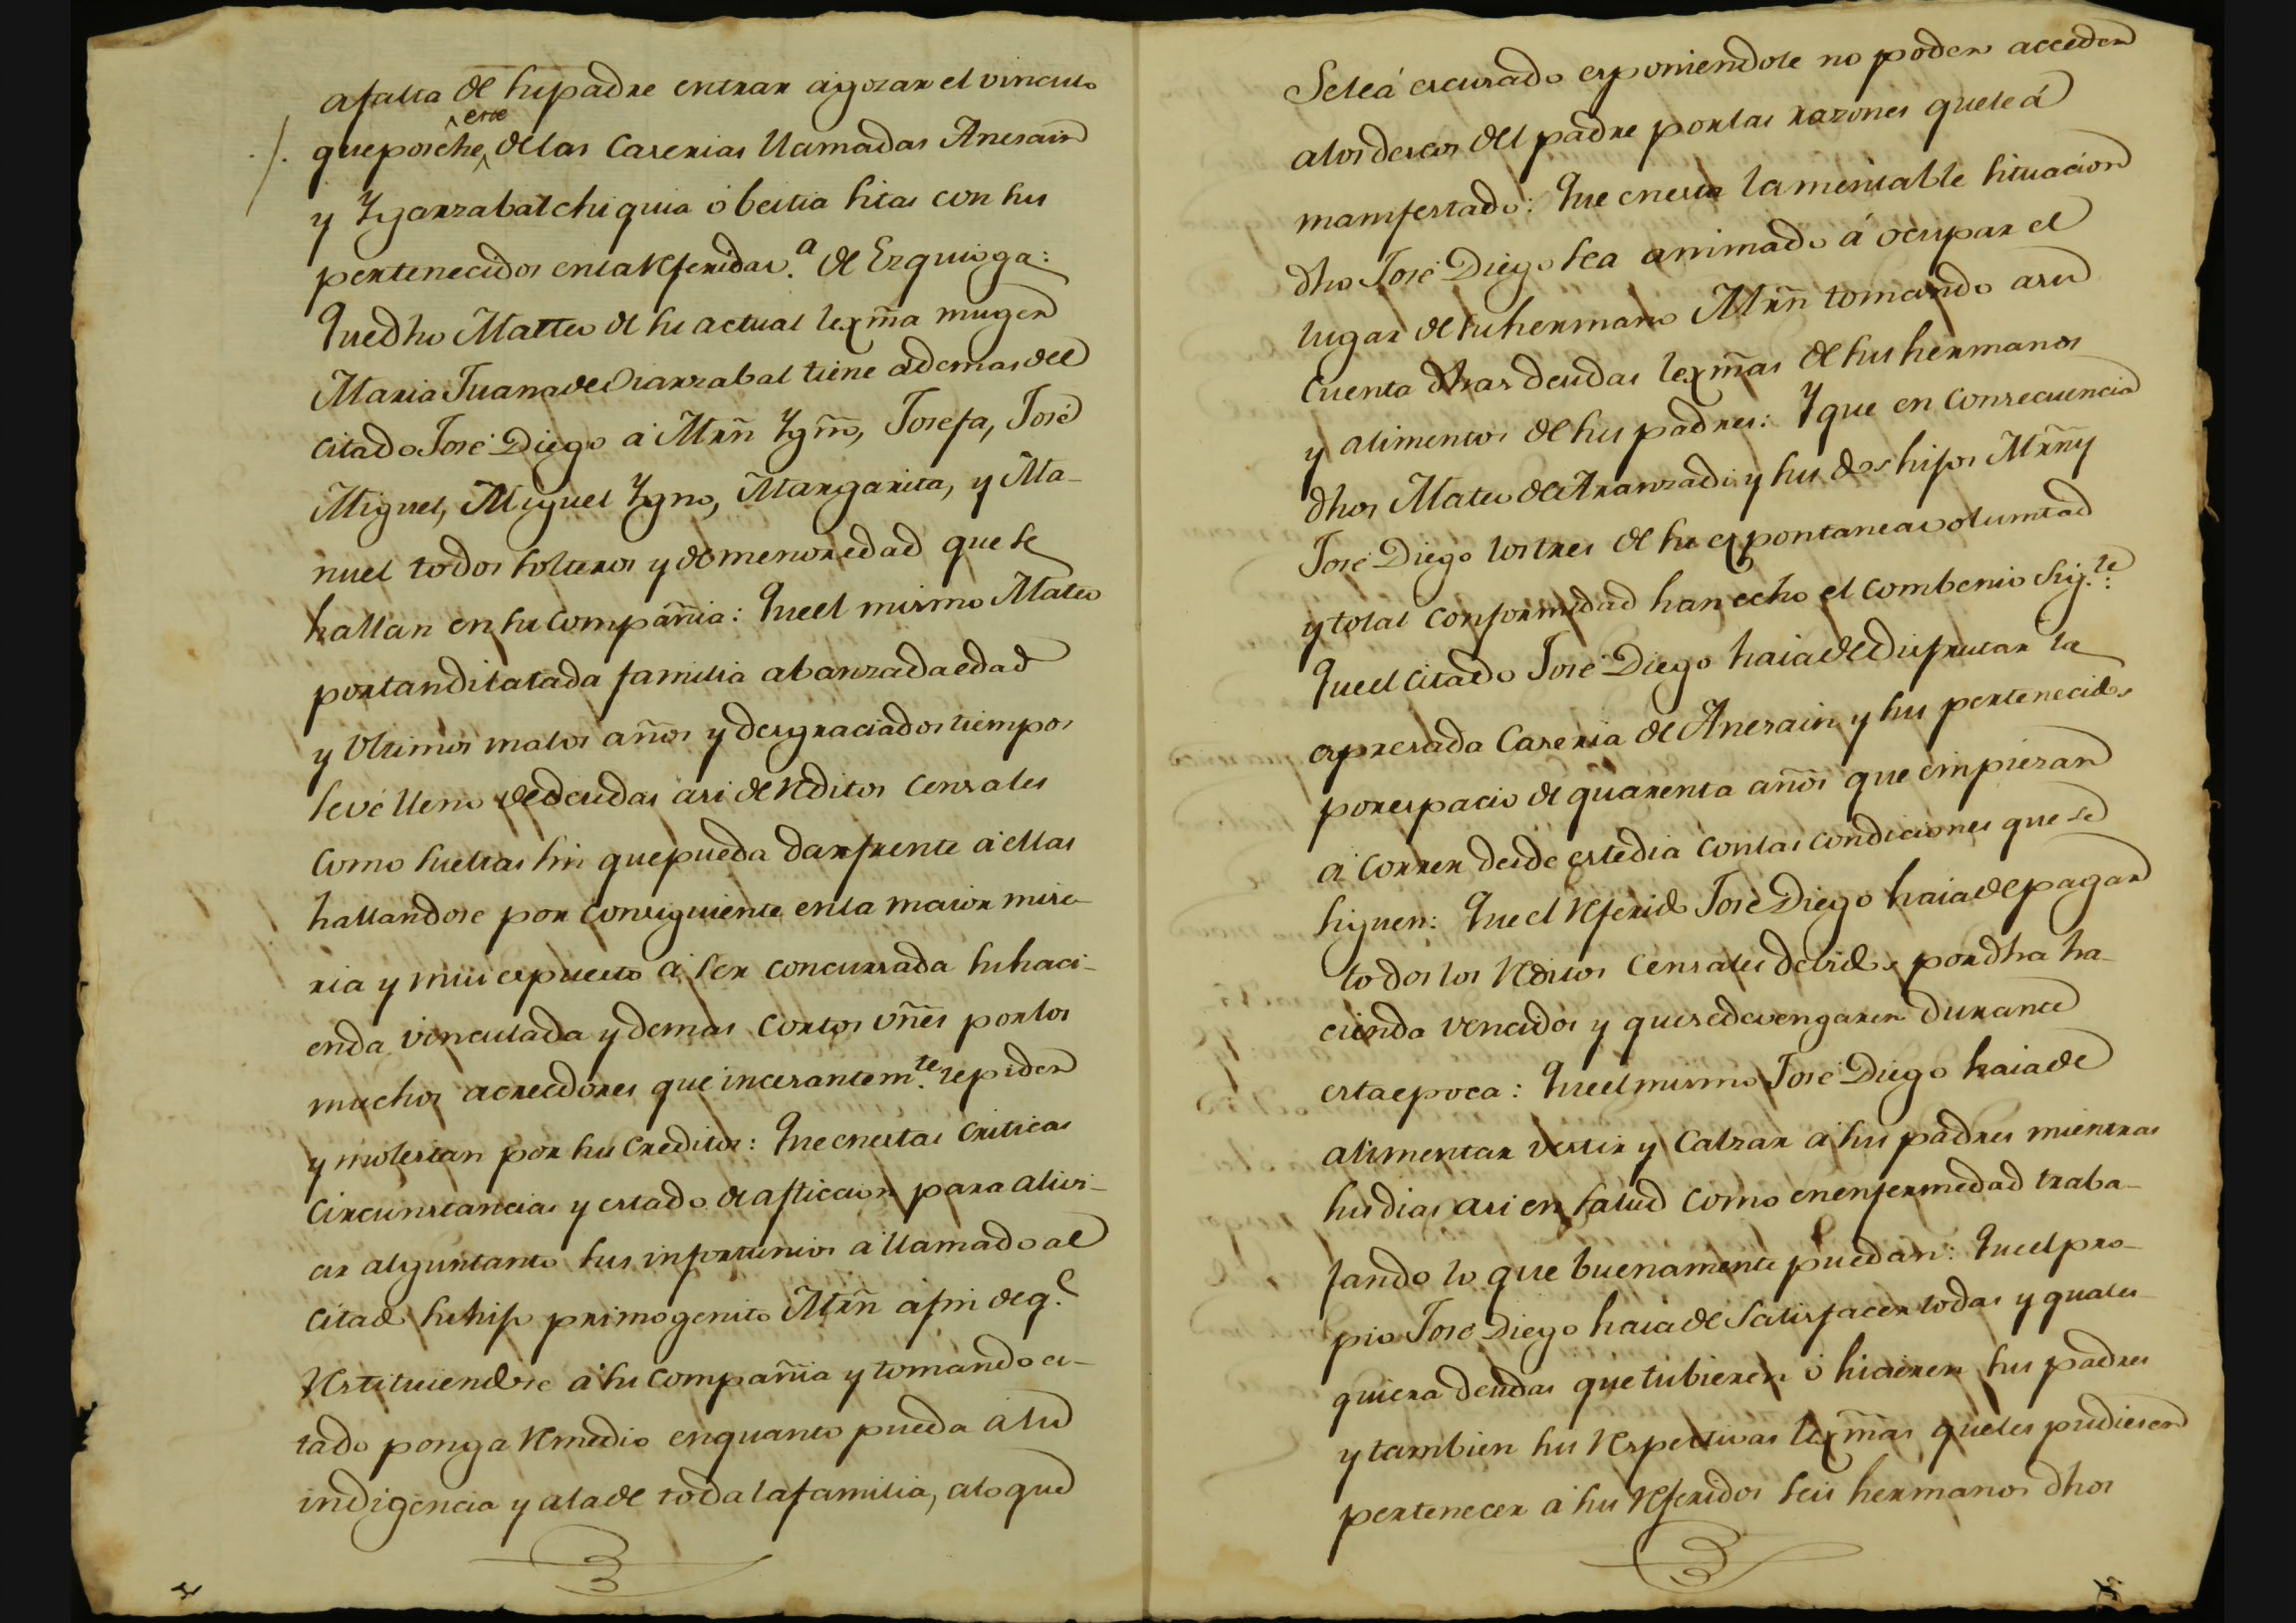 afalta de supadre entrar agozar el vinculo
queposehe este de las Caserias llamadas Anesain
y Ygarzabalchiquia ó beitia sitas con sus
pertenecidos enla referida v.ª de Ezquioga:
Quedho Matteo de su actual lexma muger
Maria Juana de Oiarzabal tiene ademas del
citado José Diego á Mrñ Ygño, Josefa, José
Miguel, Miguel Ygno, Margarita, y Ma-
nuel todos solteros y de menor edad que se
hallan en su Compañia: Queel mismo Mateo
portandilatada familia abanzadaedad
y Ultimos malos años y desgraciados tiempos
sevé lleno dedeudas asi de reditos Censales
Como sueltas sin quepueda darfrente á ellas
hallandose por Consiguiente enla maior mise-
ria y mui espuesto á ser concursada suhaci-
enda vinculada ydemas Cortos vñes porlos
muchos acreedores que incesantem.te lepiden
y molestan por sus Creditos: Que enestas Criticas
Circunstancias y estado de afliccion para alivi-
ar alguntanto sus infortunios á llamado al
Citado suhijo primogenito Mrñ afin deq.e
restituiendose á su Compañia y tomando es-
tado ponga remedio enquanto pueda á su
indigencia y alade todalafamilia, aloque
Seleá escusado esponiendole no poder acceder
alos deseos del padre porlas razones queleá
manifestado: Que enesta lamentable situacion
dho José Diego sea animado á ocupar el
lugar de suhermano Mrñ tomando asu
Cuenta dhas deudas lexmas de sus hermanos
y alimentos de sus padres: Y que en Consecuencia
dhos Mateo de Aranzadi y sus dos hijos Mrñ y
José Diego lostres de su espontanea voluntad
ytotal Conformidad han echo el Combenio sig.te:
Queel Citado José Diego haiadeDisfrutar la
espresada Caseria de Anesain y sus pertenecidos
porespacio de quarenta años que empiezan
á Correr desde estedia Conlas Condiciones que se
siguen: Queel referido José Diego haiadepagar
todos los reditos Censales debidos pordha ha-
cienda vencidos y quesedevengaren durante
estaepoca: Queelmismo José Diego haiade
alimentar vestir y Calzar á sus padres mientras
susdias asi en salud como enenfermedad traba-
jando lo que buenamente puedan: Queelpro-
pio José Diego haiade Satisfacer todas y quales-
quiera deudas quetubieren ó hicieren sus padres
y tambien sus respectivas lexmas queles pudiesen
pertenecer á sus referidos seis hermanos dhos